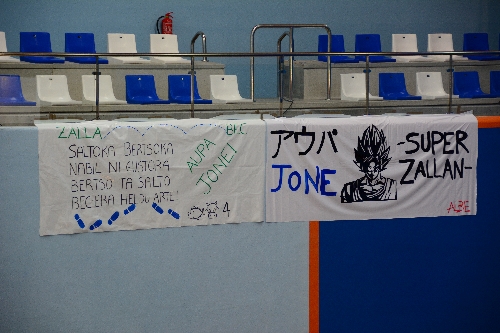 ZALLA
BEC
SALTOKA BERTSOKA
NABIL NI GUSTORA
BERTSO TA SALTO
BEGIRA HELDU ARTE!
AUPA
JONE!
4
アウパ
JONE
-SUPER
ZALLAN-
ALBE